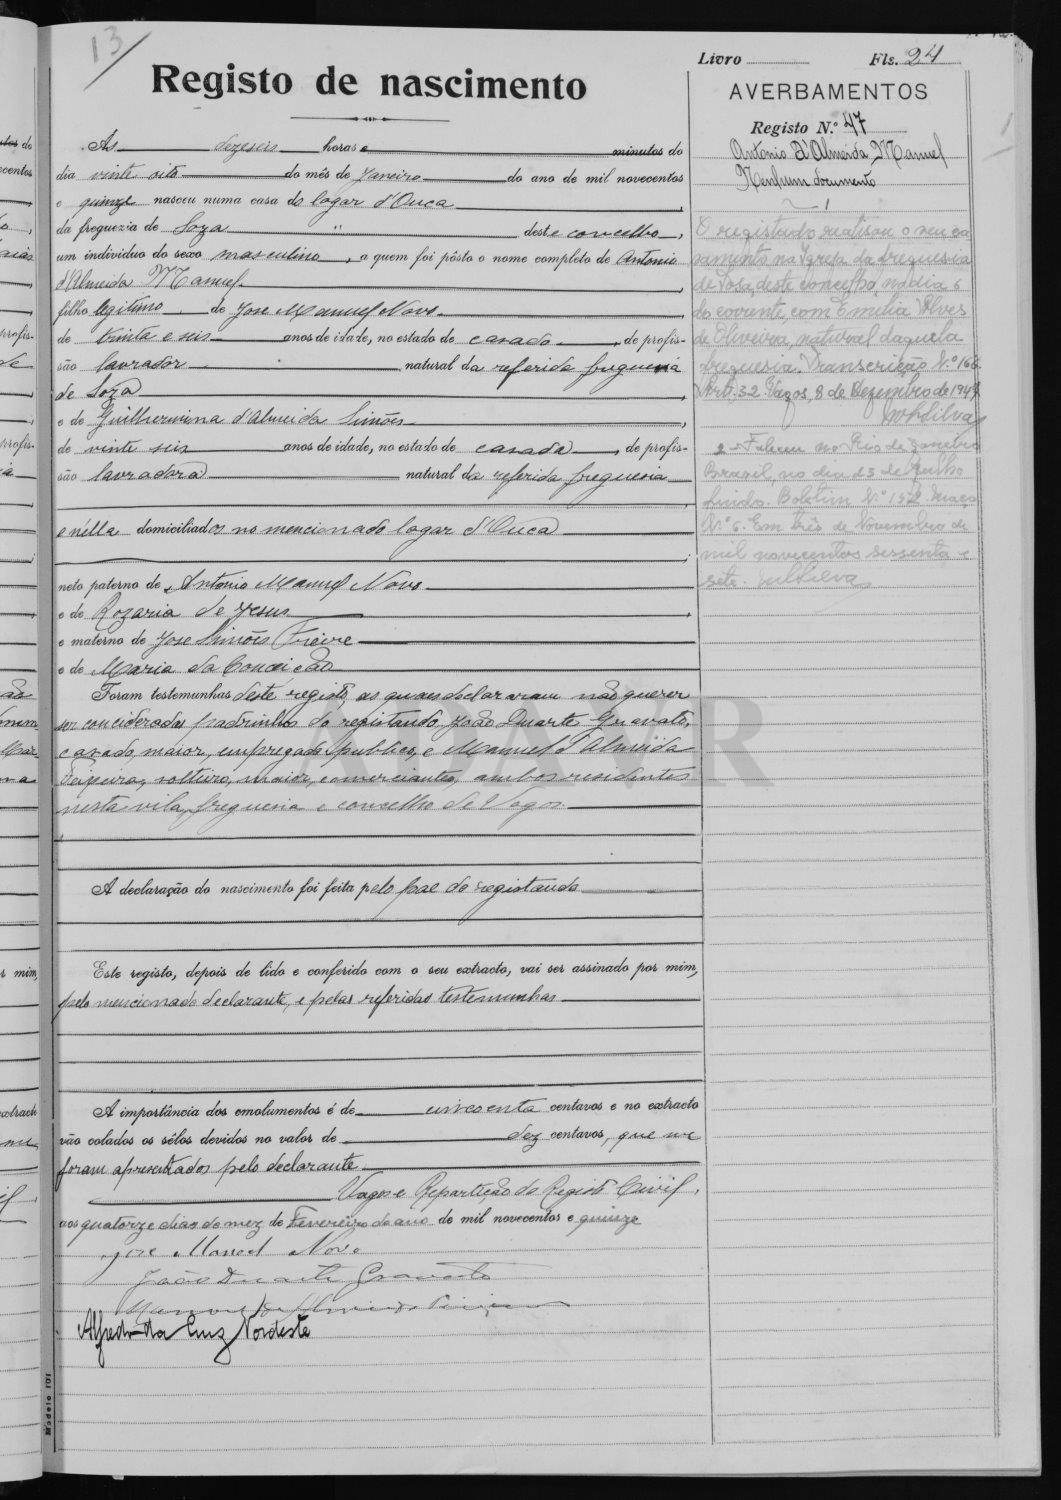 13
Registo de nascimento
Às dezeseis horas e minutos do
dia vinte oito do mês de Janeiro do ano de mil novecentos
e quinze nasceu numa casa do logar d'Ouca
da freguezia de Soza " deste concelho,
um individuo do sexo masculino, a quem foi pôsto o nome completo de Antonio
d'Almeida Manuel
filho legitimo de Jose Manuel Novo
de trinta e seis anos de idade, no estado de casado, de profis-
são lavrador natural da referida freguesia
de Soza
e de Guilhermina d'Almeida Simões
de vinte seis anos de idade, no estado de casada, de profis-
são lavradora natural da referida freguesia
e nella domiciliados no mencionado logar d'Ouca
neto paterno de Antonio Manuel Novo
e de Rozaria de Jesus
e materno de Jose Simões Freire
e de Maria da Conceição
Foram testemunhas deste registo, as quaes declararam não querer
ser concideradas padrinhos do registando, João Duarte Gravato,
casado, maior, empregado publico, e Manuel d'Almeida
Teixeira, solteiro, maior, comerciante, ambos residentes
nesta vila, freguesia e concelho de Vagos
A declaração do nascimento foi feita pelo pae do registando
Este registo, depois de lido e conferido com o seu extracto, vai ser assinado por mim,
pelo mencionado declarante, e pelas referidas testemunhas
A importância dos emolumentos é de cincoenta centavos e no extracto
vão colados os sêlos devidos no valor de dez centavos, que me
foram apresentados pelo declarante
Vagos e Repartição do Registo Civil,
aos quatorze dias do mez de Fevereiro do ano de mil novecentos e quinze
Jose Manoel Novo
João Duarte Gravato
Manuel de Almeida
Alfredo da Cruz Nordeste
Modelo 101
Livro Fls. 24
AVERBAMENTOS
Registo N.º 47
Antonio d'Almeida Manuel
Nenhum documento
1
O registado realisou o seu ca
samento na Igreja da freguesia
de Sosa, deste concelho, no dia 6
do corrente, com Emilia Alves
de Oliveira, natural daquela
freguesia. Transcrição N.º 166
Vagos, 8 de Dezembro de 194
2 - Faleceu no Rio de Janeiro
Brazil, no dia 23 de Julho
findo. Boletim N.º 152. Maço
N.º 6. Em três de Novembro de
mil novecentos sessenta e
sete.
ADAVR